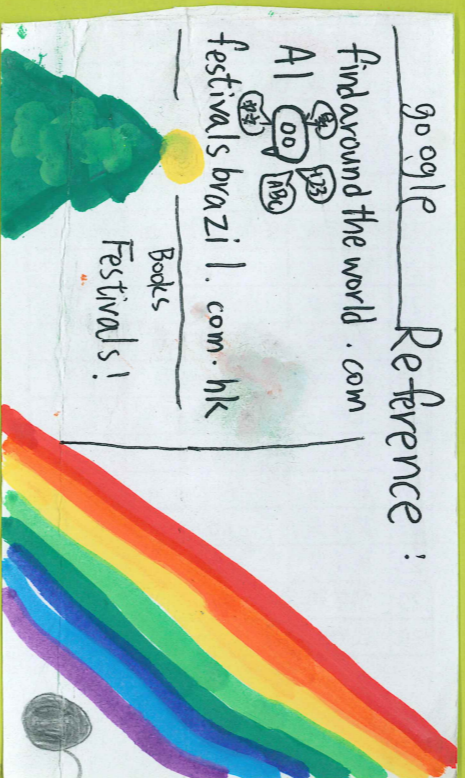 google
Reference:
findaround the world . com
AI
123
ABC
festivals brazil. com. hk
Books
Festivals!